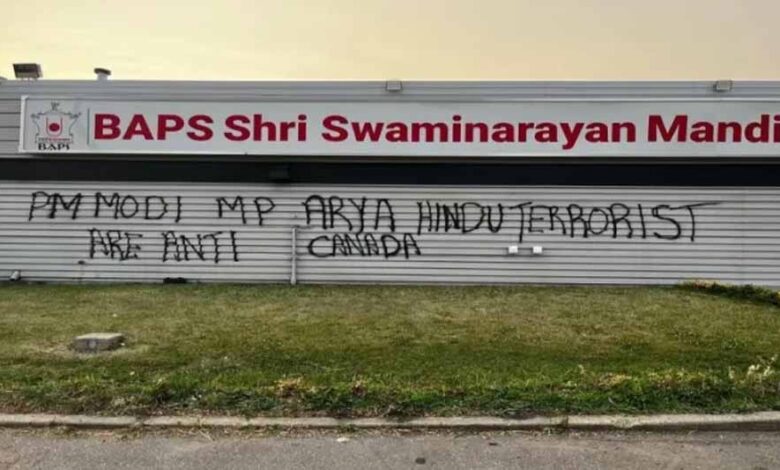 BAPS Shri Swaminarayan Mandi
BAPS
PM MODI MP ARYA HINDU TERRORIST
ARE ANTI CANADA